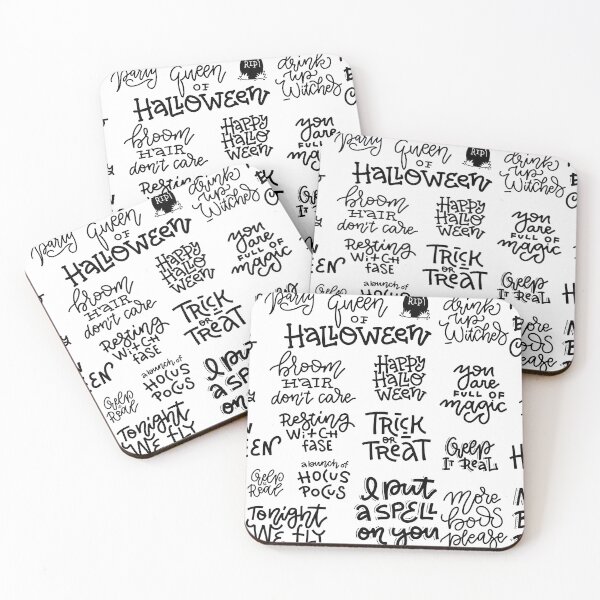 Party Queen
OF
HALLOWEEN
RIP!
drink
up
Witches
broom
HAIR
don't care
HAPPY
HALLO
WEEN
you
are
FULL OF
magic
Resting
Party Queen
OF
HALLOWEEN
RIP!
drink
up
Witches
broom
HAIR
don't care
HAPPY
HALLO
WEEN
you
are
FULL OF
magic
Resting
WITCH
fASE
TRICK
OR
TREAT
Creep
IT REAL
More
boos
please
Party Queen
OF
HALLOWEEN
RIP!
drink
up
Witches
broom
HAIR
don't care
HAPPY
HALLO
WEEN
you
are
FULL OF
magic
Resting
WITCH
fASE
TRICK
OR
TREAT
EN
Creep
Real
a bunch of
HOCUS
POCUS
I put
A SPELL
on you
Tonight
WE FLY
Party Queen
OF
HALLOWEEN
RIP!
drink
up
Witches
broom
HAIR
don't care
HAPPY
HALLO
WEEN
you
are
FULL OF
magic
Resting
WITCH
fASE
TRICK
OR
TREAT
Creep
IT REAL
EN
Creep
Real
a bunch of
HOCUS
POCUS
I put
A SPELL
on you
More
boos
please
Tonight
WE FLY